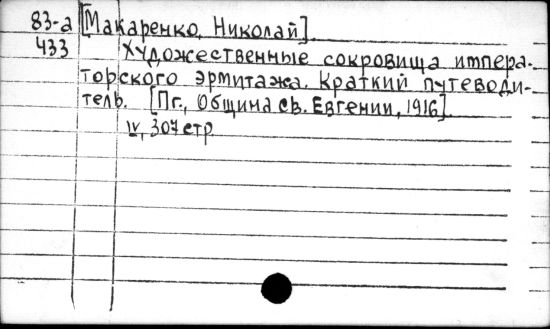 83-а [Макаренко, Николай]
433 Художественные сокровища импера-
торского эрмитажа. Краткий путеводи-
тель. [Пг., Община св. Евгении, 1916]
IV, 307 стр.